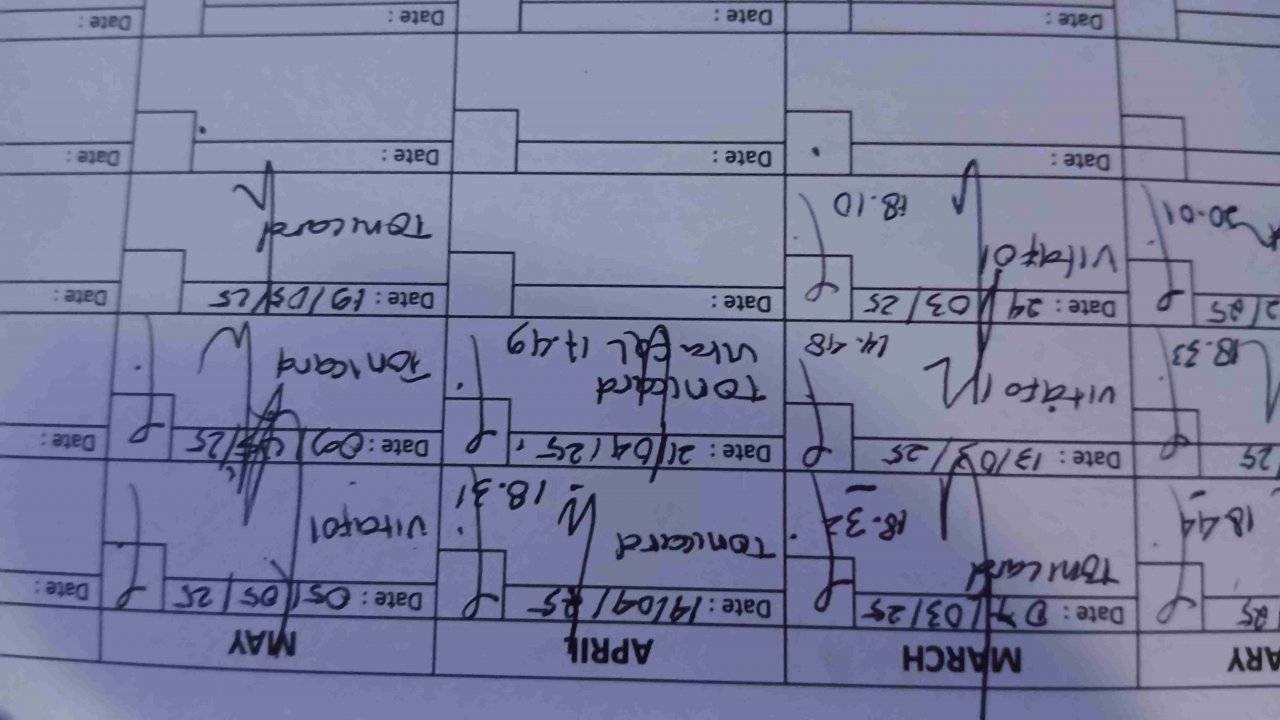 ARY MARCH APRIL MAY
25 Date: 07/03/25 Date: 14/04/25 Date: 05/05/25 Date:
18.44 Tonicard 18.32 Tonicard 18.31 Vitafol
25 Date: 13/03/25 Date: 21/04/25 Date: 09/ /25 Date:
18.33 Vitafol 14.48 Tonicard Tonicard
17.49
2/25 Date: 24/03/25 Date: Date: 19/05/25 Date:
20.01 Vitafol 18.10 Tonicard
Date: Date: Date: Date:
Date: Date: Date: Date: